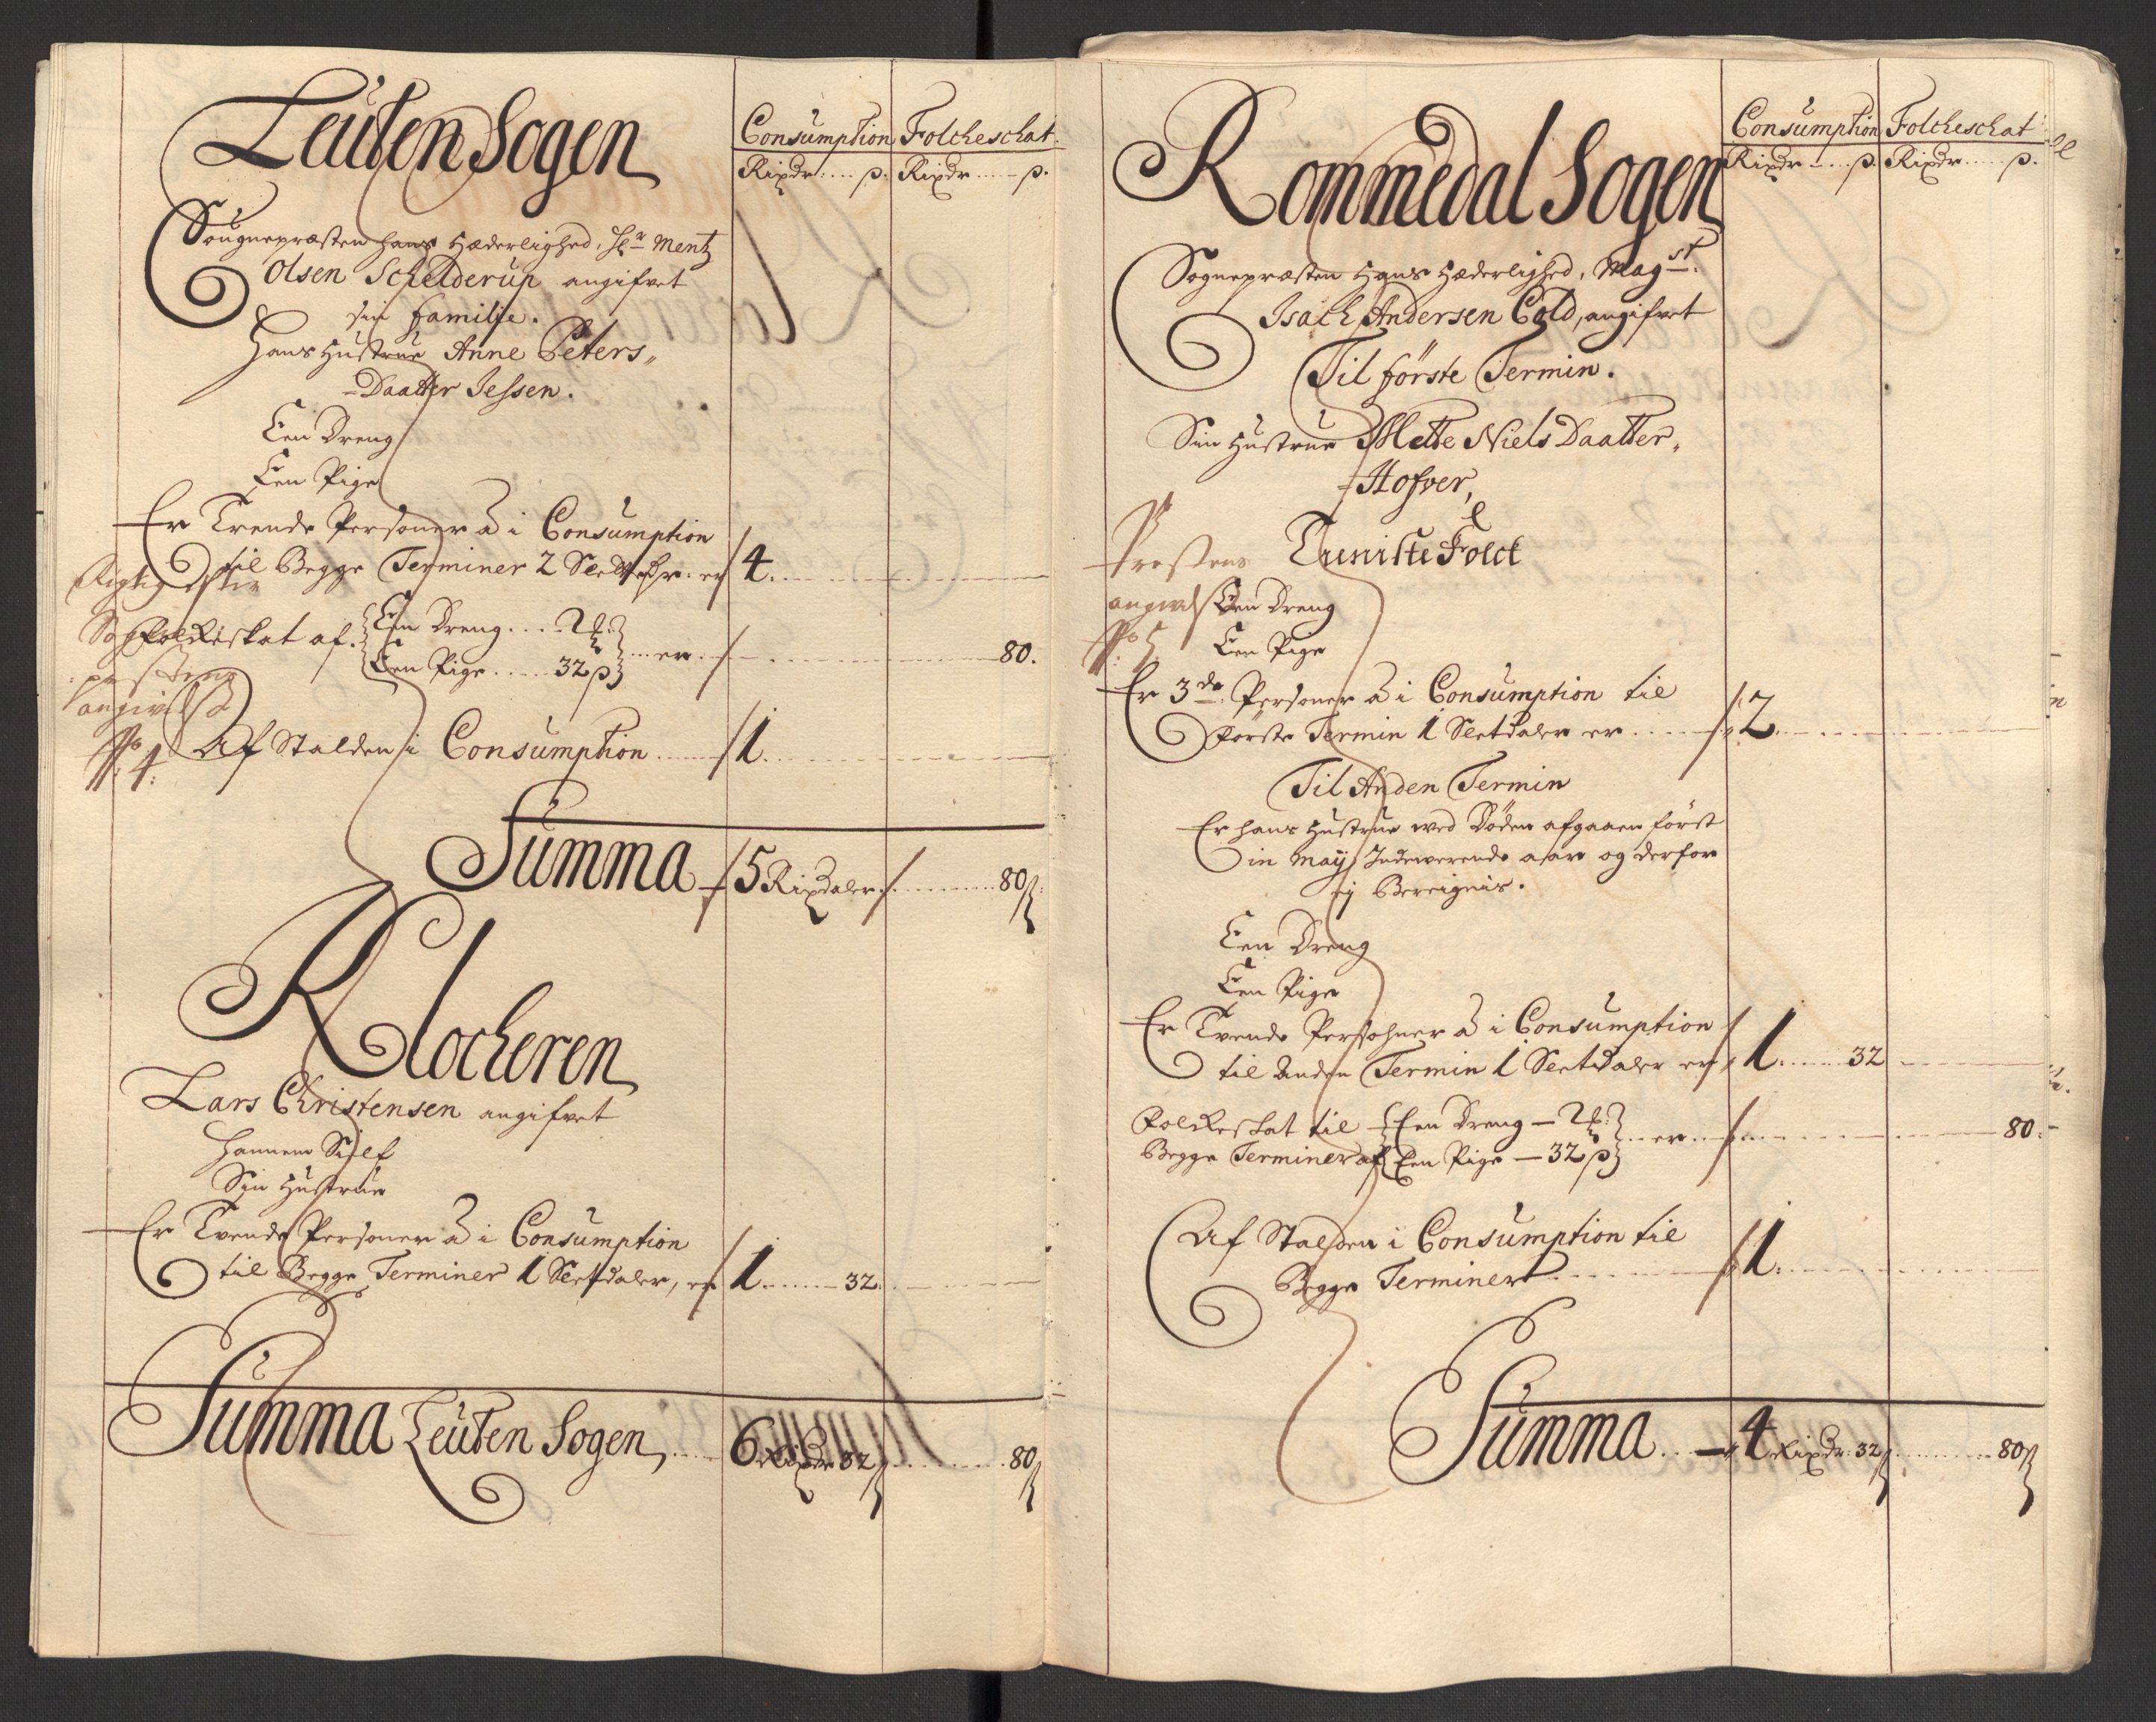 Leuten Sogen
Consumption Folcheschat
Rixdr .... ß. Rixdr .... ß.
Sougnepræsten hans Hæderlighed, Hr Mentz
Olsen Schelderup angifvet
sin familje.
Hans Hustrue Anne Peters„
-Daatter Jessen.
Een Dreng
Een Pige
Er Trende Personer à i Consumption
til Begge Terminer 2 Sletdlr. er 4.
Rigtig efter
Sog
Folkeskat af. Een Dreng .... ½
Een Pige ..... 32 ß ... er ... 80.
prestens
angivelse
No 4:
Af Stalden i Consumption ...... 1.
Summa 5 Rixdaler ........ 80 ß
Klocheren
Lars Christensen angifvet
Hannem Sielf
Sin Hustrue
Er Tvende Personer à i Consumption
til Begge Terminer 1 Sletdaler, er 1 ...... 32.
Summa Leuten Sogen, .... 6 Rixdr 32 ß ........ 80 ß
Rommedal Sogen
Consumption Folcheschat
Rixdr .... ß. Rixdr .... ß.
Sognepræsten Hans Hæderlighed, Magst.
Isach Andersen Cold, angifvet
Til förste Termin.
Sin Hustrue Mette Niels Daatter„
-Hofver,
Prestens
Tieniste Folck
angivelse
Een Dreng
No 5.
Een Pige
Er 3de Personer à i Consumption til
Förste Termin 1 Sletdaler er ..... 2.
Til Anden Termin
Er hans Hustrue ved Döden afgaaen först
in Maij Indeværende aar og derfor
ej Bereignis.
Een Dreng
Een Pige
Er Tvende Persohner à i Consumption
til Anden Termin 1 Sletdaler er 1 ...... 32
Folkeskat til Een Dreng — ½
Begge Terminer af Een Pige — 32 ß ... er ... 80.
Af Stalden i Consumption til
Begge Terminer ........ 1.
Summa ... 4 Rixdr: 32 ß ........ 80 ß